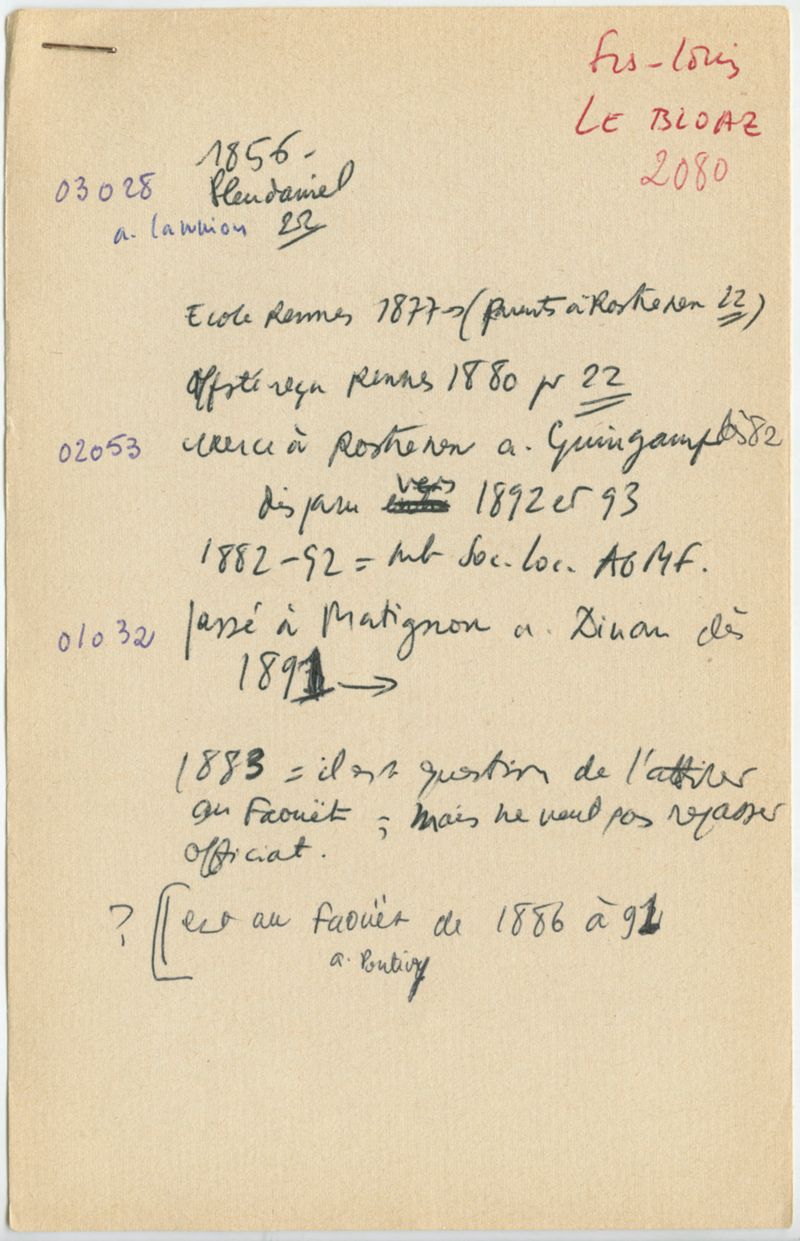 Frs-Louis
LE BLOAZ
2080
1856 -
03028 Pleudaniel
a. Lannion 22
Ecole Rennes 1877 → (parents à Rostrenen 22)
Off. sté reçu Rennes 1880 pr 22
02053 exerce à Rostrenen a. Guingamp dès 82
disparu vers 1892 et 93
1882-92 = mb Soc. loc. AGMF.
01032 passé à Matignon a. Dinan dès
1891 →
1883 = il est question de l'attirer
au Faouët ; mais ne veut pas repasser
officiat.
? [ est au Faouët de 1886 à 91
a. Pontivy